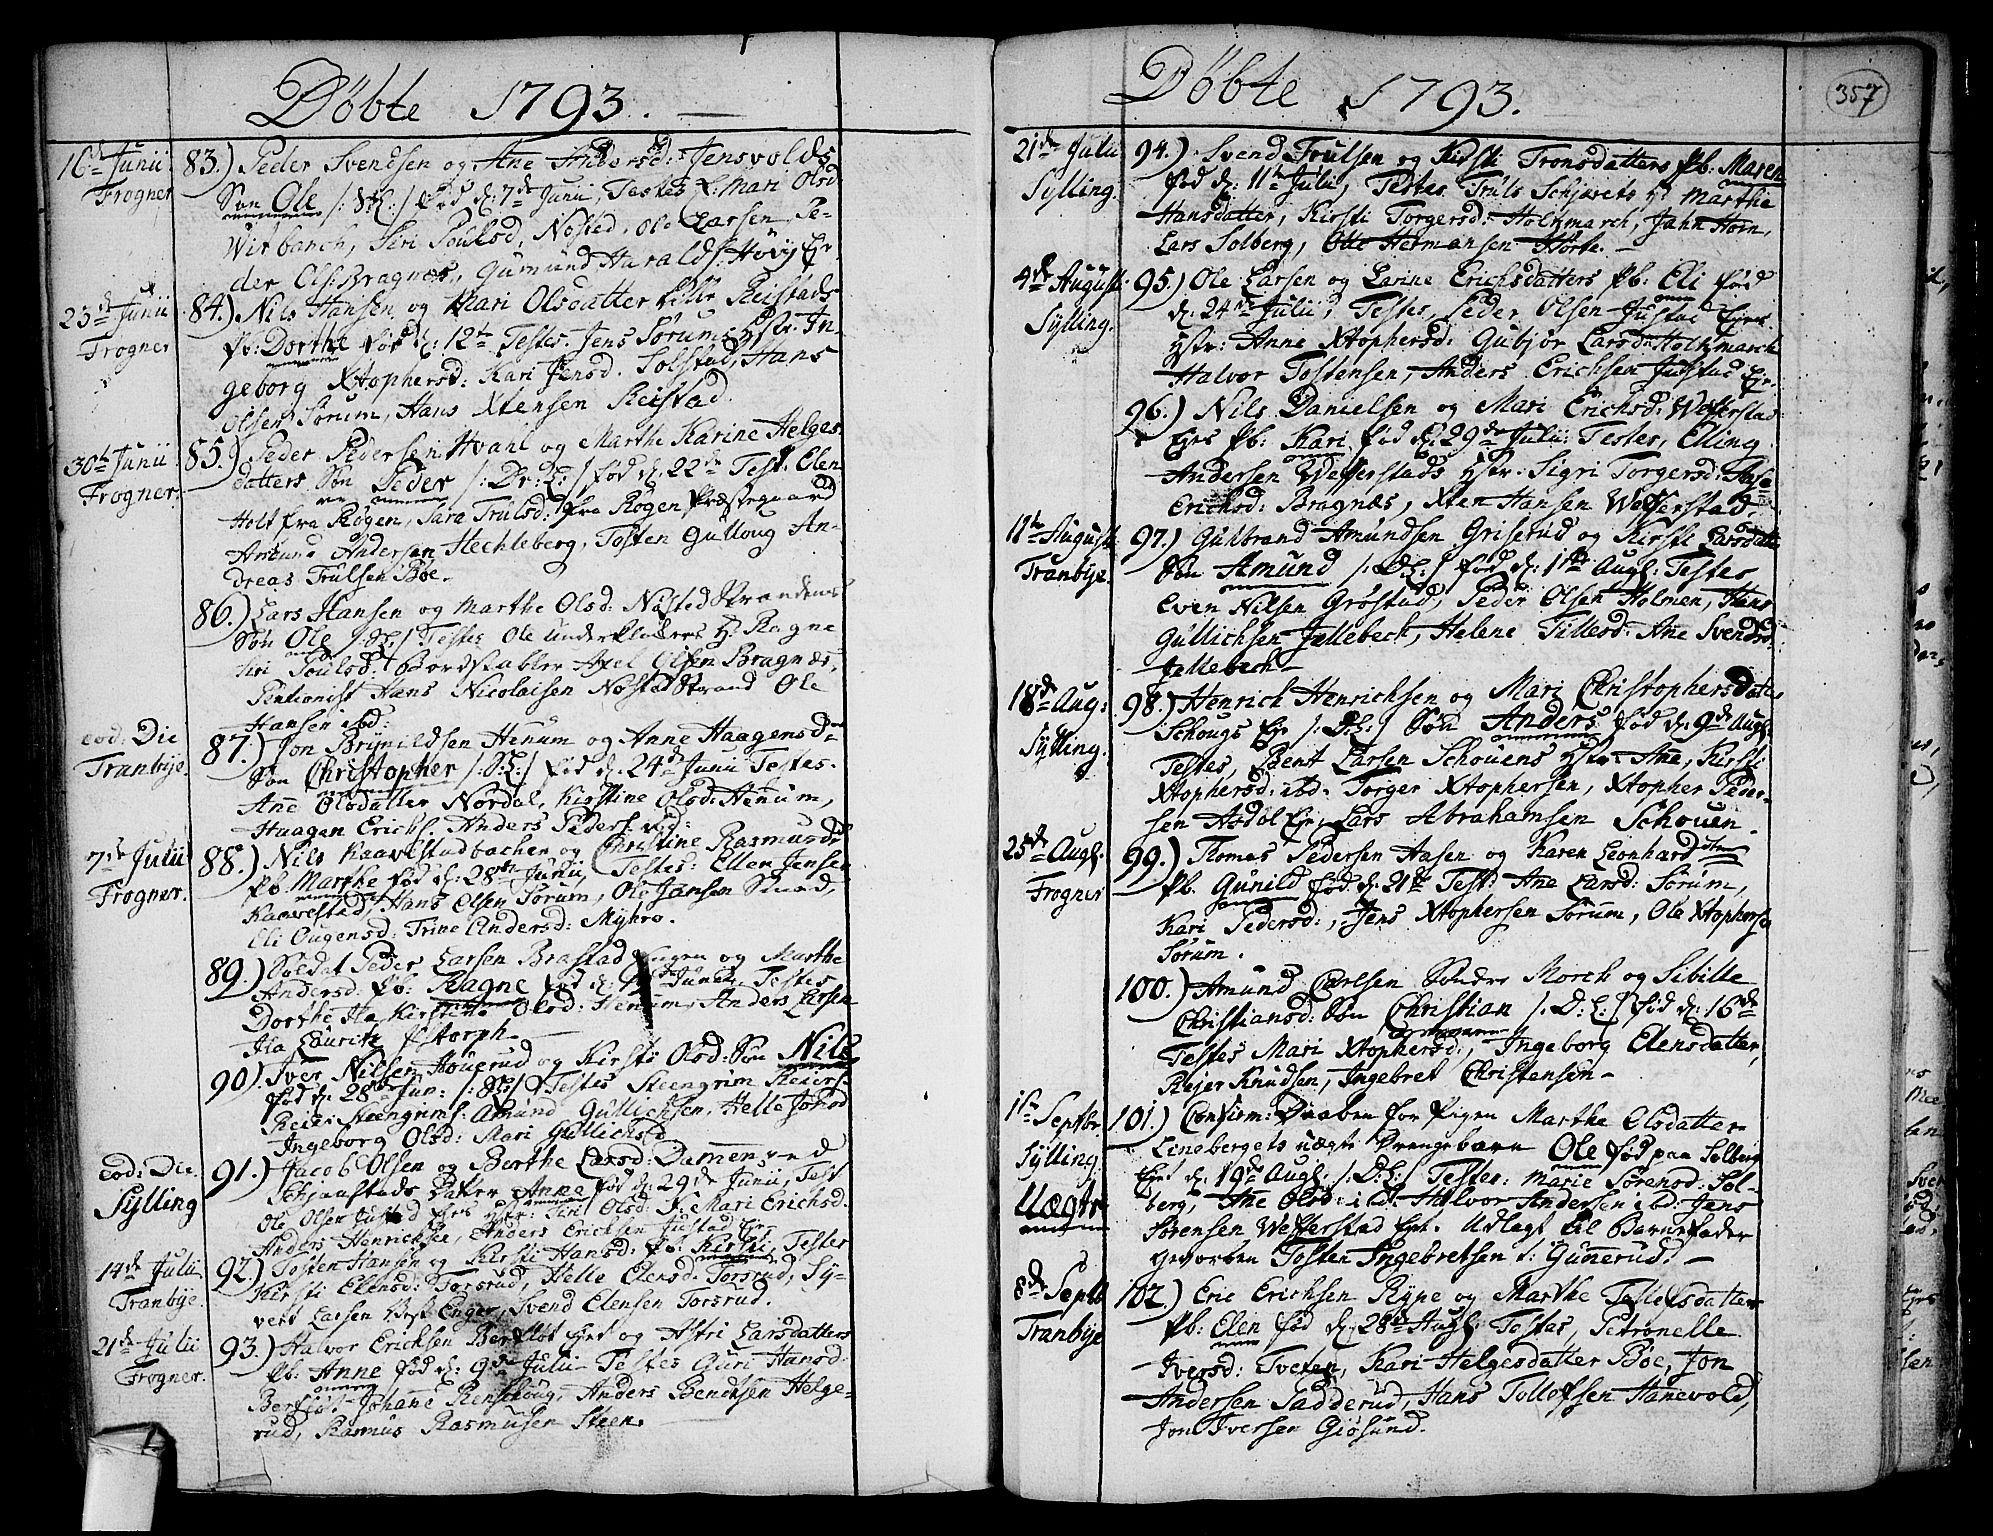 Döbte 1793.
16de Junii 83.) Peder Svendsen og Ane Andersd: Jensvolds
Frogner Søn Ole /: /: fød d: 7de Junii, Testes Mari Olsd
Wisbanch, Siri Poulsd. Nøsted, Ole Larsen, Pe-
der Ols: Bragnæs, Gumund Harald: Høvy Ejr
23de Junii 84.) Nils Hansen og Mari Olsdatter Reistads
Frogner Pb: Dorthe fød d: 12te Testes. Jens Sørums Hstr: In-
geborg Xtophersd: Kari Jensd. Solstad, Hans
Olsen Sørum, Hans Xtensen Reistad.
30te Junii 85.) Peder Pedersen Hvahl og Marthe Karine Helges
Frogner. datters Søn Peder /: D: /: fød d: 22de Test. Elen
Holt fra Røgen, Sara Trulsd: fra Røgen, Præstegaard
Amund Andersen Hechleberg, Tosten Gulloug An-
dreas Trulsen Bøe.
86.) Lars Hansen og Marthe Olsd: Nøsted Strandens
Søn Ole /: /: Testes Ole underklokkers H: Ragne
Siri Poulsd: Bordskabler Axel Olsen Bragnæs,
Pentionist Hans Nicolaisen Nøsted Strand Ole
Hansen ibd:
eod: Die 87.) Jon Brynildsen Henum og Anne Haagensd
Tranbye. Søn Christopher /: /: fød d: 24de Junii Testes.
Ane Olsdatter Nordal, Kirstine Olsd: Henum,
Haagen Erichs. Anders Peders. ibd:
7de Julii 88.) Nils Kaavestadbachen og Christine Rasmusd
Frogner. Pb. Marthe fød d: 28de Junii, Testes: Ellen Jensen
Kaavestad, Hans Olsen Sørum, Ole Jansen Smed,
Eli Ougensd: Trine Andersd: Myhre.
89.) Soldat Peder Larsen Brastad Eugen og Marthe
Andersd: Pb: Ragne fød d: Junii, Testes
Dorthe Ila Kirstine Olsd: Henum, Anders Larsen
Ila Lauritz Storph.
90.) Iver Nilsen Houerud og Kirsti Olsd: Søn Nils
fød d: 28de Jun: /: /: Testes Steengrim Reiers
Reier Steengrims: Amund Gullichsen, Helle Jonsd
Ingeborg Olsd: Mari Gullichsd
eod: Die 91.) Jacob Olsen og Berthe Larsd: Damen
Sylling Schjaastads Datter Anne fød d: 29de Junii, Test
Ole Olsen Justad Ejes Hstr: Siri Olsd: Mari Erichsd:
Anders Henrichsen, Anders Erichsen Justad Ejes
14de Julii 92.) Tosten Hansen og Kirsti Hansd: Pb: Kirsti, Testes
Tranbye. Kirsti Elensd: Torsrud, Helle Elensd: Torsrud, Sy-
vert Larsen Enger, Svend Elensen Torsrud.
21de Julii 93.) Halvor Erichsen Berfløt Ejet og Astri Larsdatters
Frogner. Pb: Anne fød d: 9de Julii Testes Guri Hansd:
Berfløt Johane Renschoug, Anders Bendtsen Helge-
rud, Rasmus Rasmusen Steen.
Döbte 1793.
357
21de Julii 94.) Svend Trulsen og Kirsti Tronsdatters Pb: Maren
Sylling. fød d: 11te Julii, Testes Truls Schjerets H: Marthe
Hansdatter, Kirsti Torgersd: Holtzmarch, Jahn Horn,
Lars Solberg, Otte Hermansen Hørte.
4de August 95.) Ole Larsen og Larine Erichsdatters Pb: Eli fød
Sylling. d: 24de Julii, Testes, Peder Olsen Justad Ejes
Hstr: Anne Xtophersd: Gubjør Larsd: Holtzmarch
Halvor Tostensen, Anders Erichsen Justad Ejr.
96.) Nils Danielsen og Mari Erichsd: Wefferstad
Ejes Pb: Kari fød d: 29de Julii: Testes, Elling
Andersen Wefferstads Hstr: Sigri Torgersd: Aase
Erichsd: Bragnæs, Xten Hansen Wefferstad.
11te August 97.) Gulbrand Amundsen Griserud og Kirsti Larsdatters
Tranbye. Søn Amund /: D: /: fød d: 1ste Augl: Testes
Even Nilsen Grøstad, Peder Olsen Holmen, Hans
Gullichsen Jellebech, Helene Tillesd: Ane Svendsd:
Jellebech
18de Aug: 98.) Henrich Henrichsen og Mari Christophersdatter
Sylling. Schougs Ejr /: D: /: Søn Anders fød d: 9de Augl:
Testes, Bent Larsen Schouens Hstr: Ane, Kirsti
Xtophersd: ibd: Torger Xtophersen, Xtopher Peder-
sen Asdøl Ejr, Lars Abrahamsen Schouen.
25de Augl. 99.) Thomas Pedersen Aasen og Karen Leonhard
Frogner Pb. Gunild fød d: 21de Test: Ane Larsd: Sørum,
Kari Pedersd:, Jens Xtophersen Sørum, Ole Xtophersen
Sørum.
100.) Amund Carlsen Søndre Morck og Sibille
Christiansd: Søn Christian /: D: /: fød d: 16de
Testes Mari Xtophersd:, Ingeborg Elensdatter,
Reier Knudsen, Ingebret Christensen
1ste Septbr. 101.) Confirm: Daaben for Pigen Marthe Olsdatter
Sylling. Linebergets uægte Drengebarn Ole fød paa Solberg
Uægte Ejet d: 19de Augl. /: D: /: Testes: Marie Sørensd: Sol-
berg, Ane Olsd: i d: Halvor Andersen ibd: Jens
Sørensen Wefferstad Ejet. Udlagt til Barnefader
Gevorben Tosten Ingebretsen i: Gunnerud.
8de Septb 102.) Eric Erichsen Rype og Marthe Tollefsdatter
Tranbye Pb: Elen fød d: 28de Augl: Testes, Petronelle
Iversd: Tveten, Kari Helgesdatter Bøe, Jon
Andersen Sadderud, Hans Tollofsen Hanevold,
Jon Iversen Giøsund.